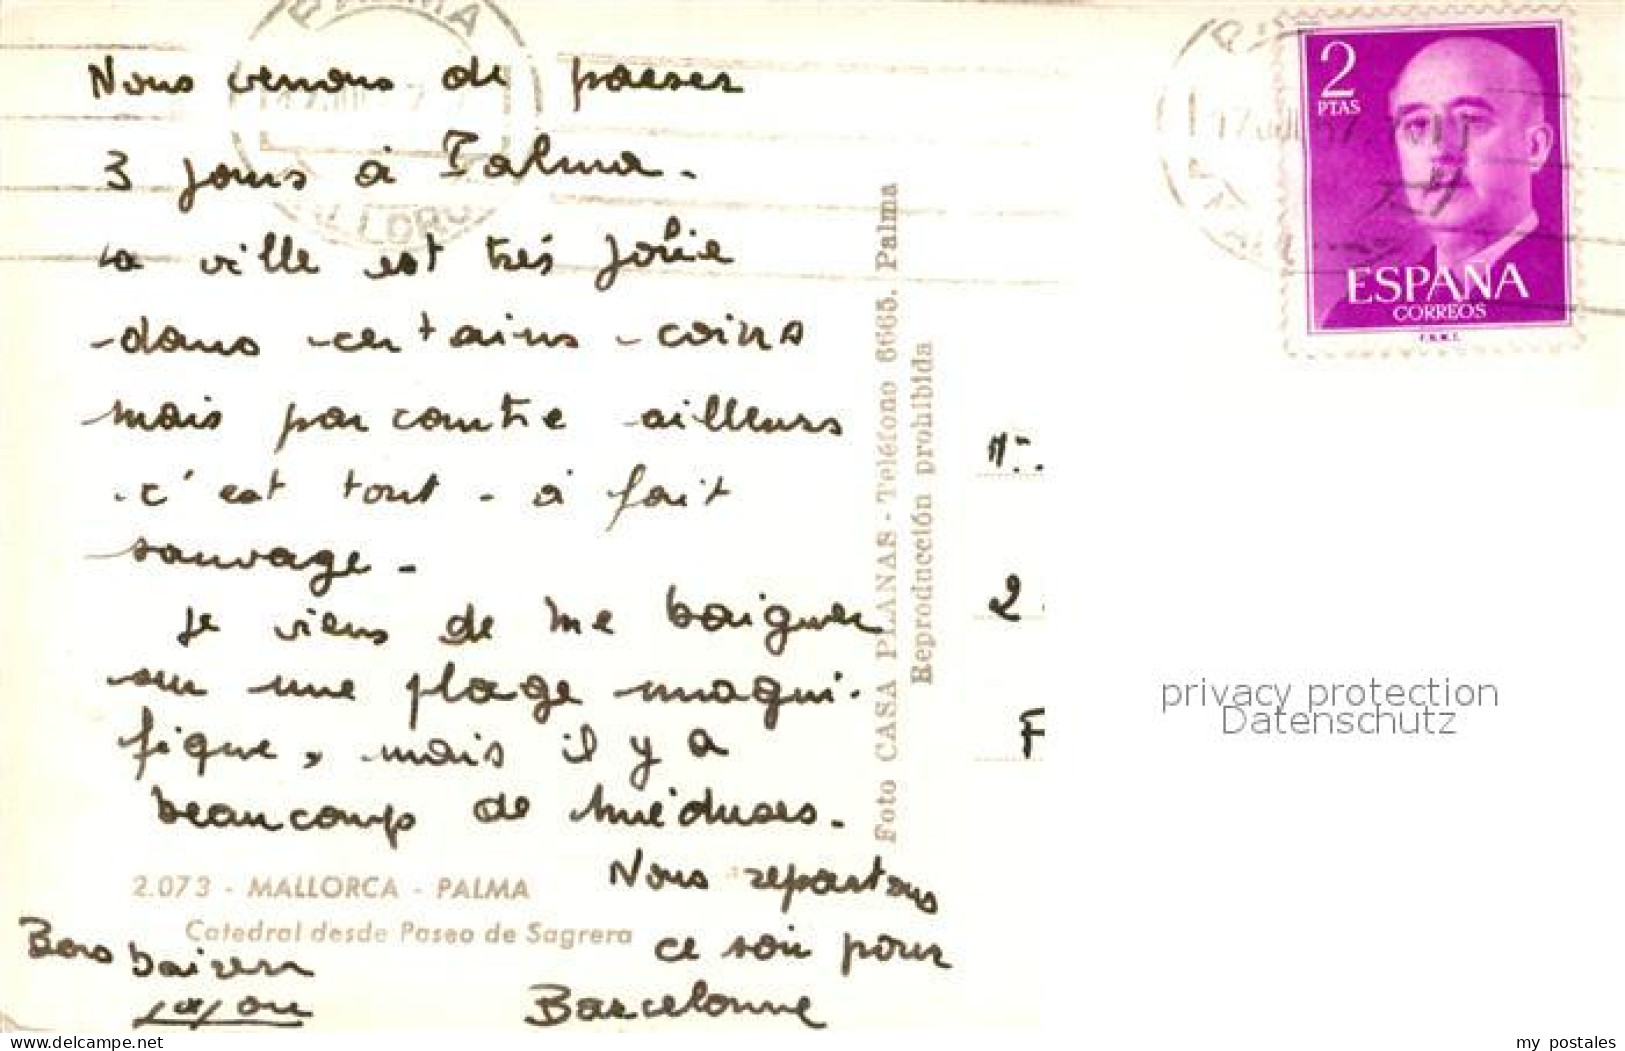 Nous venons de passer
3 jours à Palma.
La ville est très jolie
dans certains coins
mais par contre ailleurs
c'est tout-à fait
sauvage -
Je viens de me baigner
sur une plage magni-
fique, mais il y a
beaucoup de méduses.
Nous repartons
ce soir pour
Barcelonne
Bons baisers
2.073 - MALLORCA - PALMA
Catedral desde Paseo de Sagrera
Foto CASA PLANAS - Teléfono 6665. Palma
Reproducción prohibida
PALMA
2
PTAS
ESPAÑA
CORREOS
F.N.M.T.
2
F
privacy protection
Datenschutz
my_postales